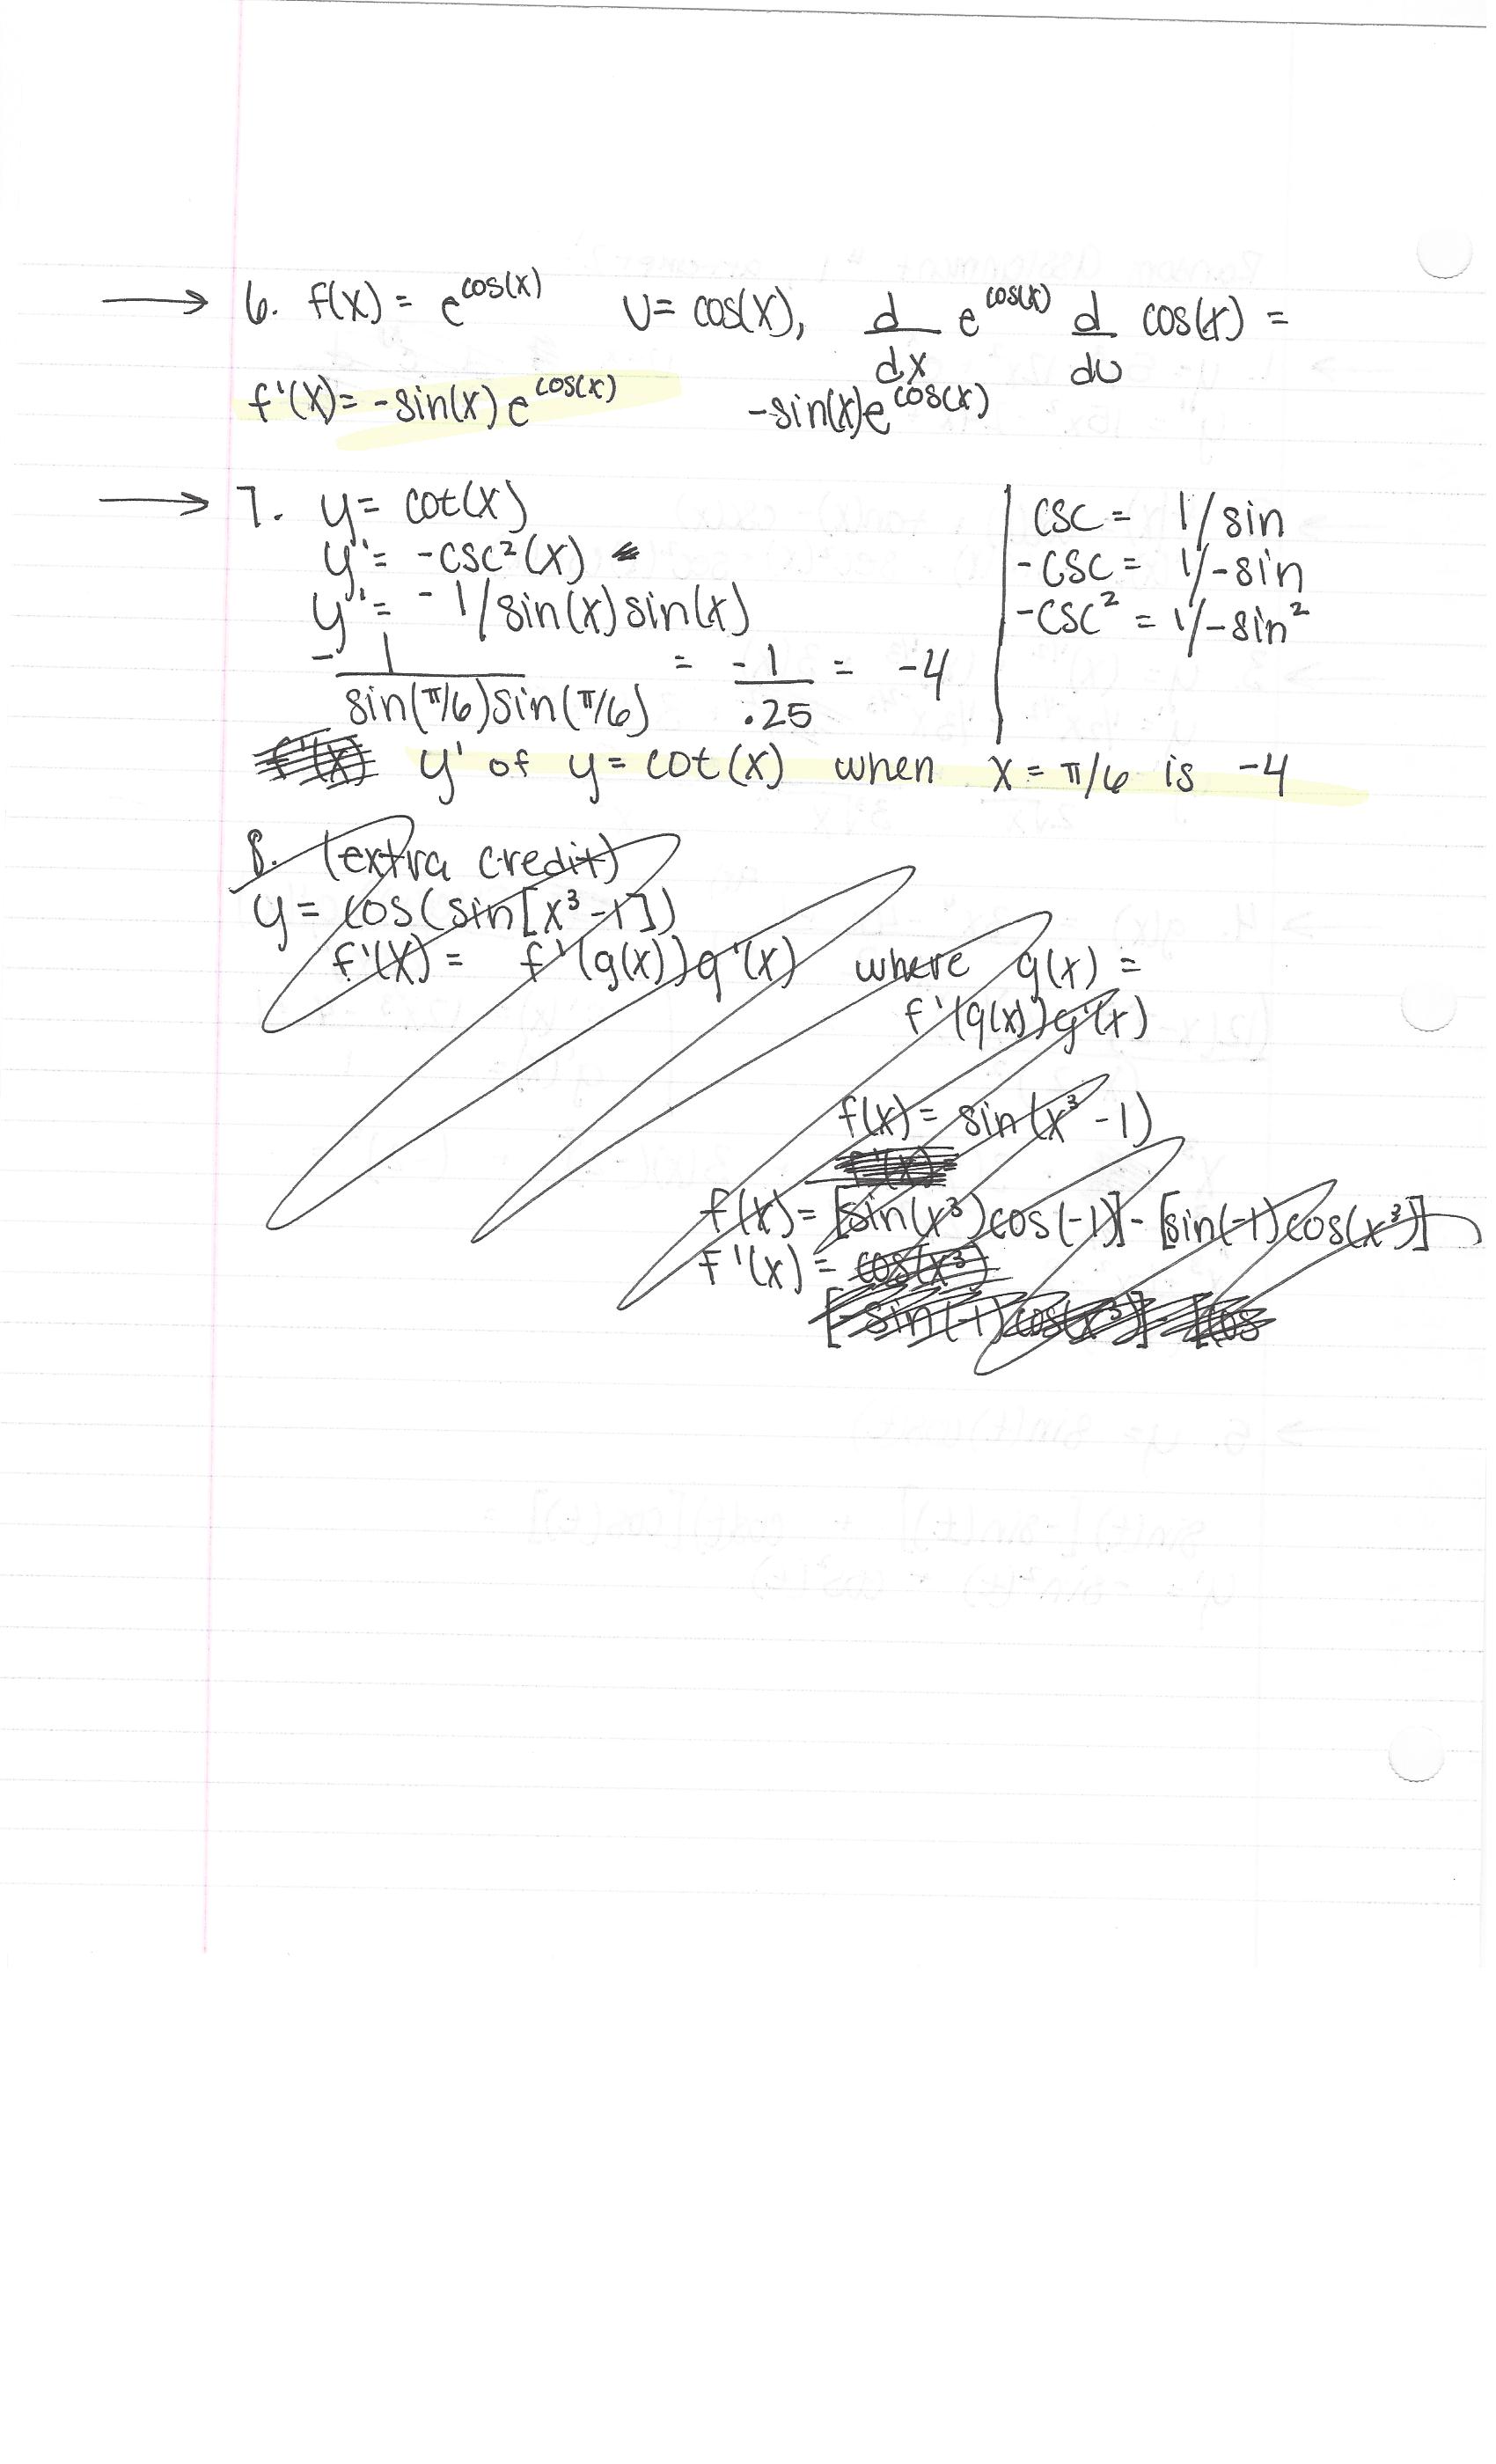 → 6. f(x) = e^cos(x) U = cos(x), d/dx e^cos(x) d/du cos(x) =
f'(x) = -sin(x) e^cos(x) -sin(x)e^cos(x)
→ 7. y = cot(x)
y' = -csc²(x)
y' = -1/sin(x)sin(x)
- 1/sin(π/6)sin(π/6) = -1/.25 = -4
csc = 1/sin
-csc = 1/-sin
-csc² = 1/-sin²
f'(x) y' of y = cot(x) when x = π/6 is -4
8. (extra credit)
y = cos(sin[x³-1])
f'(x) = f'(g(x))g'(x) where g(x) =
f'(g(x))g'(x)
f(x) = sin(x³-1)
f'(x) =
f(x) = [sin(x³)cos(-1)] - [sin(-1)cos(x³)]
f'(x) = cos(x³)
[-sin(-1)cos(x³)] - [cos